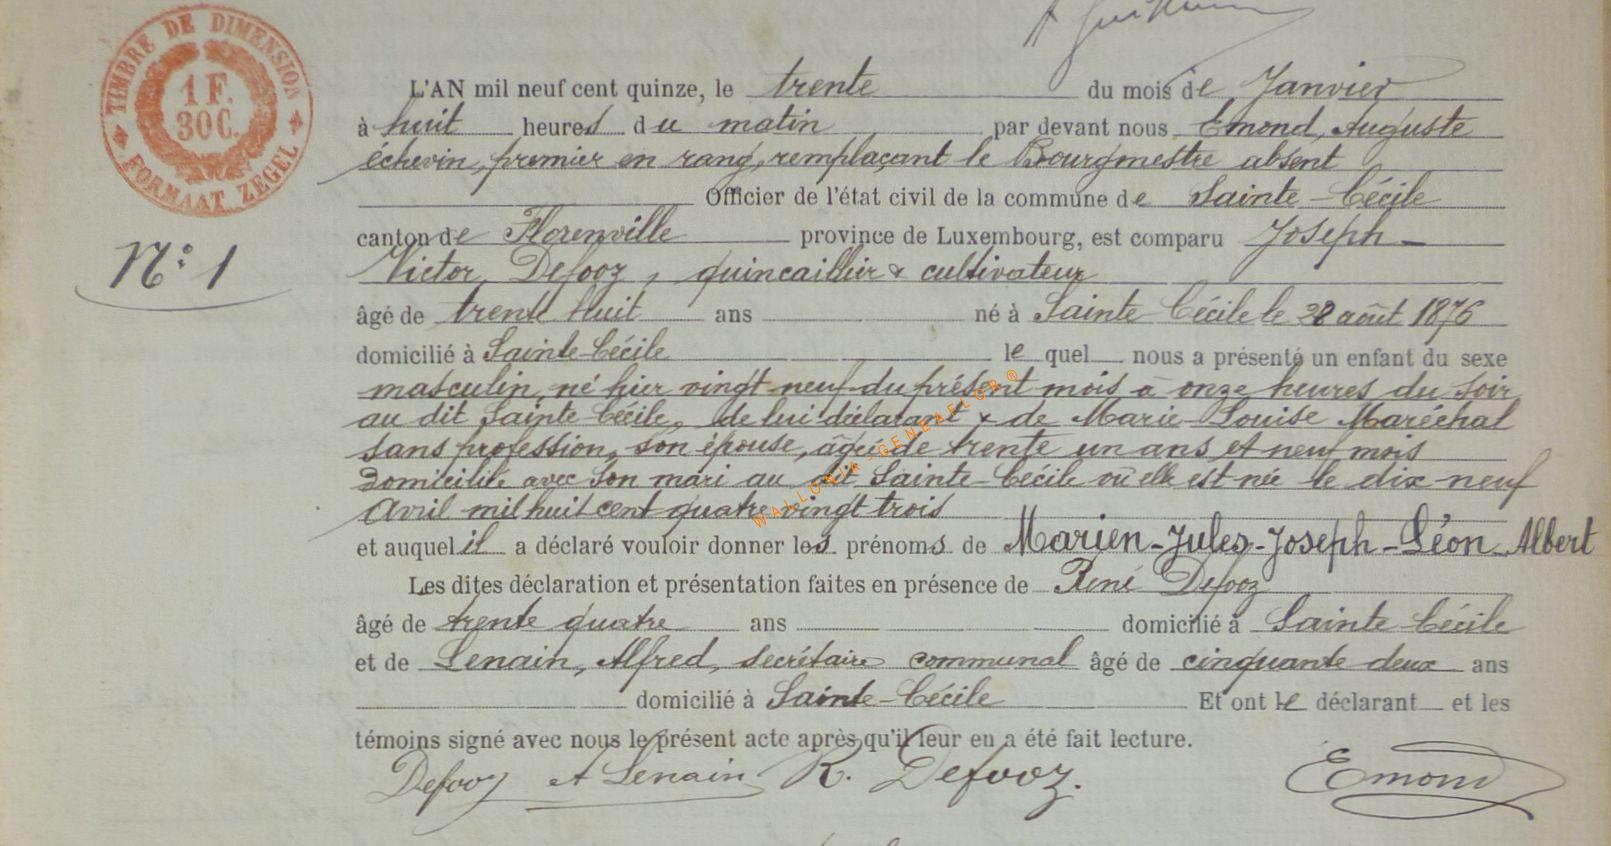 TIMBRE DE DIMENSION
1 F.
30 C.
FORMAAT ZEGEL
L'AN mil neuf cent quinze, le trente du mois de Janvier
à huit heures du matin par devant nous Emond, Auguste
échevin, premier en rang, remplaçant le Bourgmestre absent
Officier de l'état civil de la commune de Sainte-Cécile
canton de Florenville province de Luxembourg, est comparu Joseph-
N° 1
Victor Defooz, quincaillier & cultivateur
âgé de trente huit ans né à Sainte Cécile le 28 août 1876
domicilié à Sainte-Cécile lequel nous a présenté un enfant du sexe
masculin, né hier vingt-neuf du présent mois à onze heures du soir
au dit Sainte Cécile, de lui déclarant & de Marie-Louise Maréchal
sans profession, son épouse, âgée de trente un ans et neuf mois
domiciliée avec son mari au dit Sainte-Cécile où elle est née le dix neuf
Avril mil huit cent quatre vingt trois
WALLONIA-GENEAFLOR®
et auquel il a déclaré vouloir donner les prénoms de Marien-Jules-Joseph-Léon-Albert
Les dites déclaration et présentation faites en présence de René Defooz
âgé de trente quatre ans domicilié à Sainte Cécile
et de Lenain, Alfred, secrétaire communal âgé de cinquante deux ans
domicilié à Sainte-Cécile Et ont le déclarant et les
témoins signé avec nous le présent acte après qu'il leur en a été fait lecture.
Defooz A Lenain R. Defooz. Emond